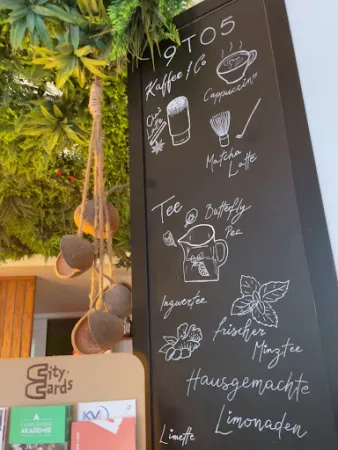 9TO5
Kaffee & Co
Cappuccino
Chai
Latte
Matcha
Latte
Tee
Butterfly
Pea
Ingwertee
frischer
Minztee
Hausgemachte
Limonaden
Limette
City
Cards
AKADEMIE
KV